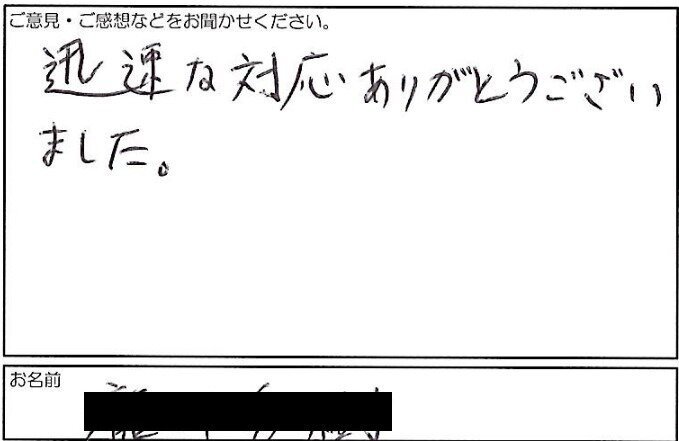 ご意見・ご感想などをお聞かせください。
迅速な対応ありがとうござい
ました。
お名前